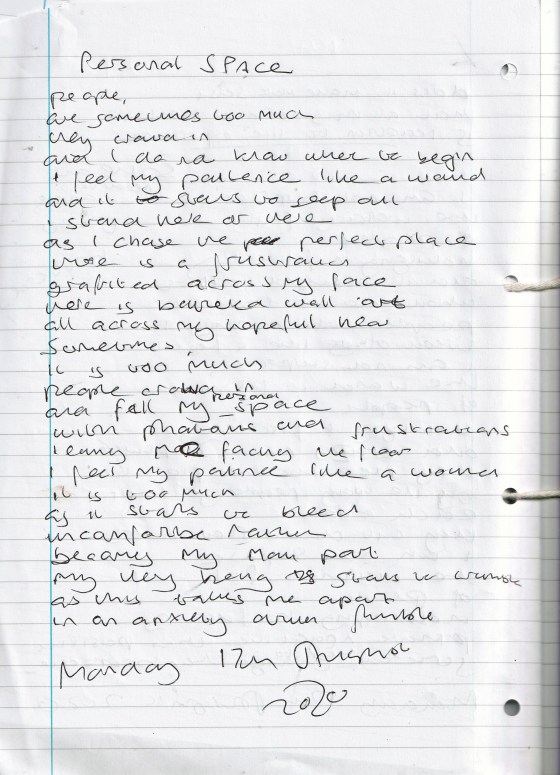 Personal SPACE
people,
are sometimes too much
they crowd in
and I do no know where to begin
I feel my patience like a wound
and it starts to seep out
I stand here or there
as I chase the perfect place
there is a frustration
grafited across my face
here is battered wall art
all across my hopeful hear
Sometimes,
it is too much
people crowd in
and fill my personal space
with phobias and frustrations
leaving me facing the floor
I feel my patience like a wound
it is too much
as it starts to bleed
uncomfortable
becomes my main part
my very being starts to crumble
as this takes me apart
in an anxiety driven fumble
Monday 17th August
2020